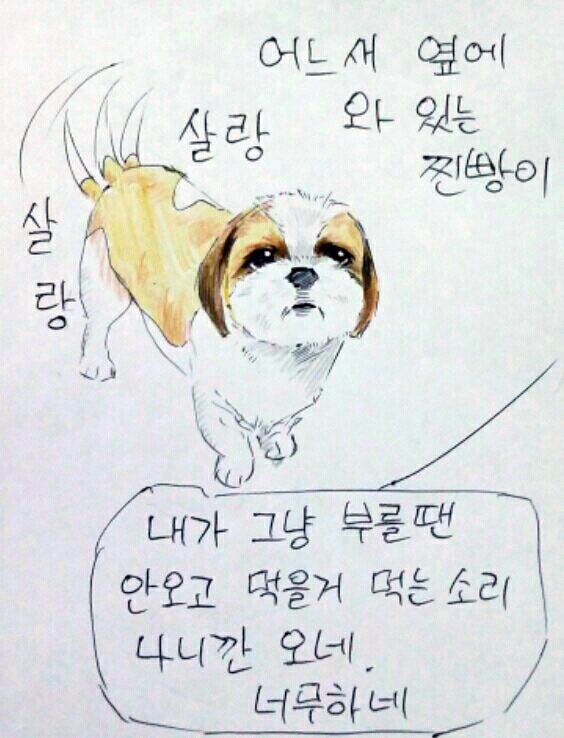 어느새 옆에
와 있는
찐빵이
살랑
살
랑
내가 그냥 부를땐
안오고 먹을거 먹는소리
나니깐 오네.
너무하네